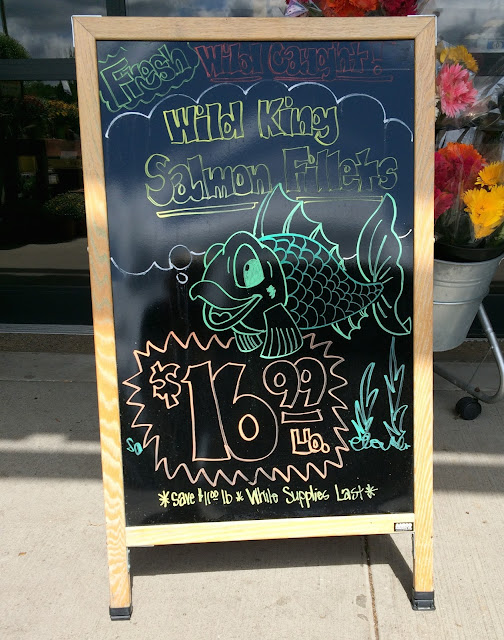 Fresh Wild Caught
Wild King
Salmon Fillets
$16 99
Lb.
*Save $11.00 lb * While Supplies Last*